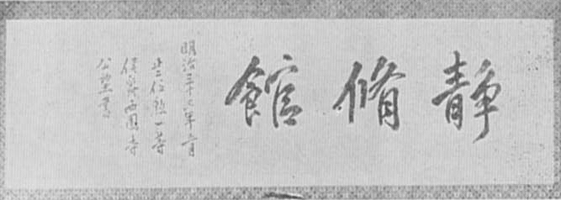 静脩館
明治三十 年 月
正二位勲一等
侯爵西園寺
公望書